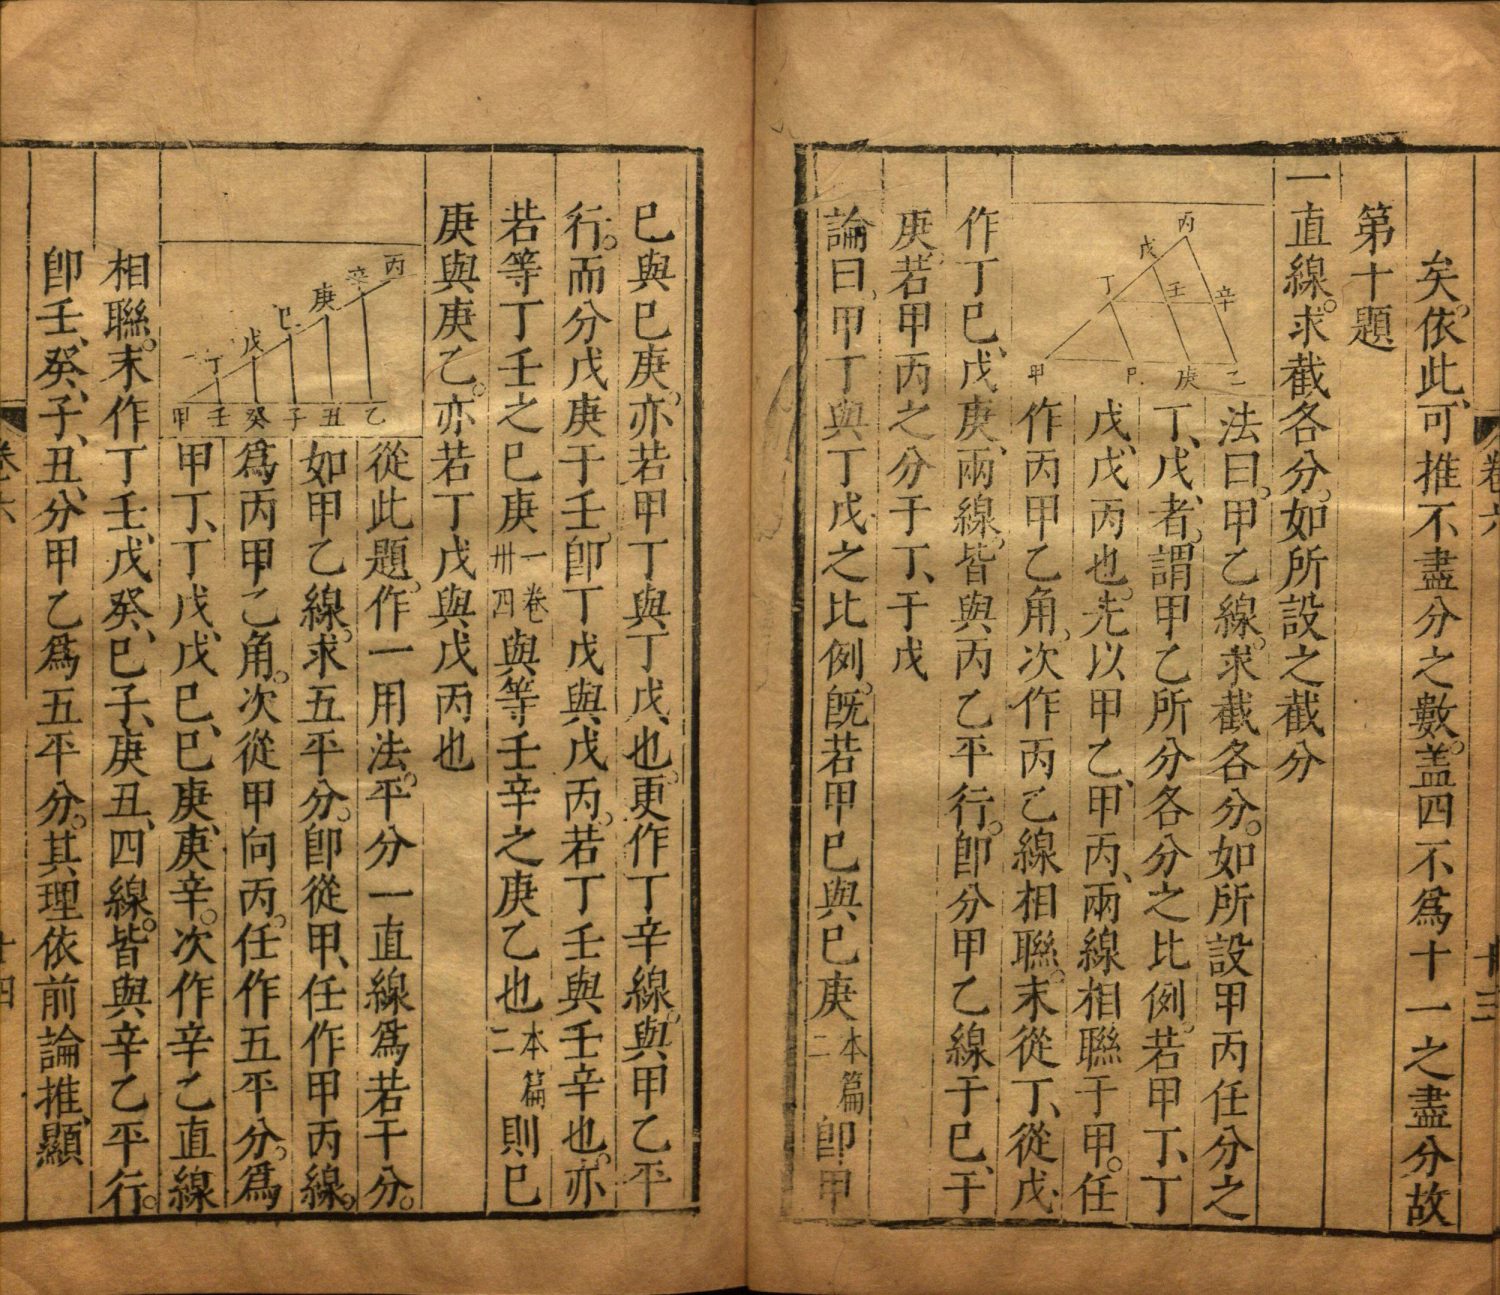 卷六
十三
矣。依此、可推不盡分之數。盖四不爲十一之盡分故
第十題
一直線。求截各分。如所設之截分
丙
戊
丁
壬
辛
甲
庚
乙
法曰。甲乙線。求截各分。如所設甲丙任分之
丁、戊、者。謂甲乙所分各分之比例。若甲丁、丁
戊、戊丙也。先以甲乙、甲丙、兩線相聯于甲。任
作丙甲乙角、次作丙乙線相聯。末從丁、從戊、
作丁巳、戊庚、兩線。皆與丙乙平行。卽分甲乙線于巳、于
庚。若甲丙之分于丁、于戊
論曰。甲丁與丁戊之比例。旣若甲巳與巳庚 本篇二 卽甲
巳與巳庚、亦若甲丁與丁戊、也。更作丁辛線。與甲乙平
行。而分戊庚于壬。卽丁戊與戊丙。若丁壬與壬辛也。亦
若等丁壬之巳庚 一卷卅四 與等壬辛之庚乙也 本篇二 則巳
庚與庚乙。亦若丁戊與戊丙也
丙
辛
庚
巳
戊
丁
甲 壬 癸 子 丑 乙
從此題。作一用法。平分一直線爲若干分。
如甲乙線。求五平分。卽從甲、任作甲丙線。
爲丙甲乙角。次從甲向丙。任作五平分。爲
甲丁、丁戊、戊巳、巳庚、庚辛。次作辛乙直線
相聯。末作丁壬、戊癸、巳子、庚丑、四線。皆與辛乙平行。
卽壬、癸、子、丑、分甲乙爲五平分。其理依前論推、顯
卷六
十四